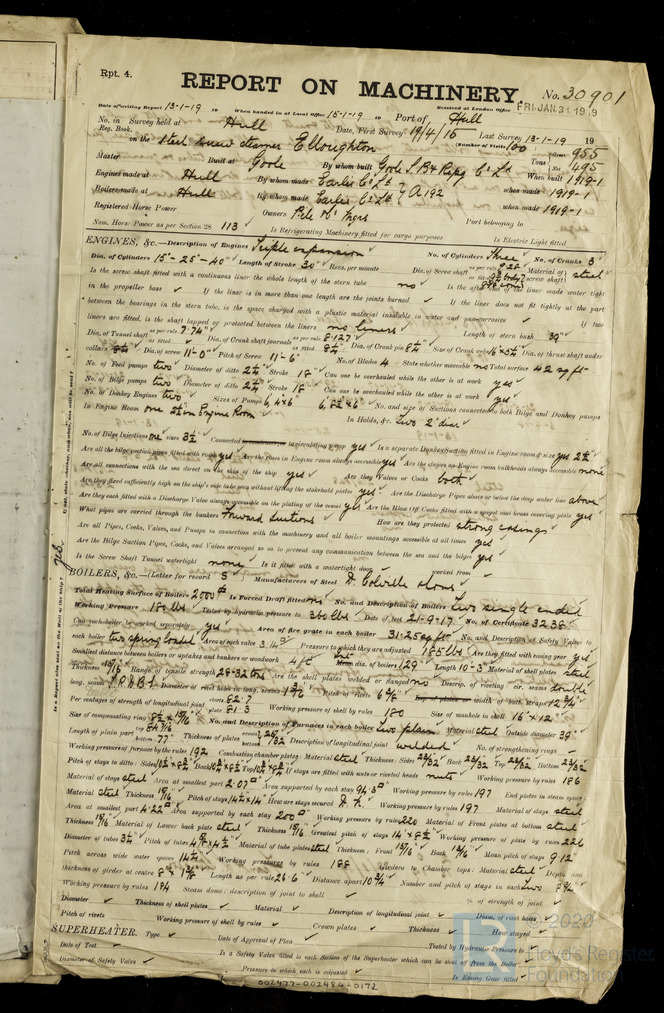 Rpt. 4.
REPORT ON MACHINERY.
No. 30901
Date of writing Report 13-1-19 19 When handed in at Local Office 15-1-19 19 Port of Hull
Received at London Office FRI. JAN 31 1919
No. in Survey held at Hull Date, First Survey 19/4/15 Last Survey 13-1-19 19
Reg. Book. (Number of Visits 100
on the steel screw steamer Elloughton Tons Gross 955 Net 495
Master Built at Goole By whom built Goole S.B. & Repg Co Ld When built 1919-1
Engines made at Hull By whom made Earle's Co Ld when made 1919-1
Boilers made at Hull By whom made Earle's Co Ld A 192 when made 1919-1
Registered Horse Power Owners Port belonging to
Nom. Horse Power as per Section 28 113 Is Refrigerating Machinery fitted for cargo purposes Is Electric Light fitted
ENGINES, &c.—Description of Engines Triple expansion No. of Cylinders Three No. of Cranks 3
Dia. of Cylinders 15"-25"-40" Length of Stroke 30" Revs. per minute Dia. of Screw shaft as per rule Material of screw shaft steel
Is the screw shaft fitted with a continuous liner the whole length of the stern tube no Is the after end of the liner made water tight
in the propeller boss If the liner is in more than one length are the joints burned If the liner does not fit tightly at the part
between the bearings in the stern tube, is the space charged with a plastic material insoluble in water and non-corrosive If two
liners are fitted, is the shaft lapped or protected between the liners no liners Length of stern bush 39"
Dia. of Tunnel shaft as per rule 7.74" Dia. of Crank shaft journals as per rule 8.127" Dia. of Crank pin 8½" Size of Crank webs Dia. of thrust shaft under
collars 8½" Dia. of screw 11'-0" Pitch of Screw 11'-6" No. of Blades 4 State whether moceable no Total surface 42 sq ft
No. of Feed pumps two Diameter of ditto 2½" Stroke 18" Can one be overhauled while the other is at work yes
No. of Bilge pumps two Diameter of ditto 2½" Stroke 18" Can one be overhauled while the other is at work yes
No. of Donkey Engines two Sizes of Pumps No. and size of Suctions connected to both Bilge and Donkey pumps
In Engine Room one 2½ in Engine Room In Holds, &c. two 2" dia
No. of Bilge Injections one sizes 3½" Connected to circulating pump yes Is a separate Donkey Suction fitted in Engine room & size yes 2½"
Are all the bilge suction pipes fitted with roses yes Are the roses in Engine room always accessible yes Are the sluices on Engine room bulkheads always accessible none
Are all connections with the sea direct on the skin of the ship yes Are they Valves or Cocks both
Are they fixed sufficiently high on the ship's side to be seen without lifting the stokehold plates yes Are the Discharge Pipes above or below the deep water line above
Are they each fitted with a Discharge Valve always accessible on the plating of the vessel yes Are the Blow Off Cocks fitted with a spigot and brass covering plate yes
What pipes are carried through the bunkers Forward suctions How are they protected strong casings
Are all Pipes, Cocks, Valves, and Pumps in connection with the machinery and all boiler mountings accessible at all times yes
Are the Bilge Suction Pipes, Cocks, and Valves arranged so as to prevent any communication between the sea and the bilges yes
Is the Screw Shaft Tunnel watertight none Is it fitted with a watertight door worked from
BOILERS, &c.—(Letter for record S Manufacturers of Steel D. Colville & Sons
Total Heating Surface of Boilers 2000 Is Forced Draft fitted no No. and Description of Boilers two single ended
Working Pressure 180 lbs Tested by hydraulic pressure to 360 lbs Date of test 21-9-17 No. of Certificate 3238
Can each boiler be worked separately yes Area of fire grate in each boiler 31.25 sq ft No. and Description of Safety Valves to
each boiler two spring loaded Area of each valve 3.14 Pressure to which they are adjusted 185 lbs Are they fitted with easing gear yes
Smallest distance between boilers or uptakes and bunkers or woodwork 4 ft dia. of boilers 129" Length 10-3 Material of shell plates steel
Thickness 15/16 Range of tensile strength 28-32 tons Are the shell plates welded or flanged no Descrip. of riveting: cir. seams double
long. seams Diameter of rivet holes in long. seams Pitch of rivets width of butt straps 12¾"
Per centages of strength of longitudinal joint rivets 82.7 plate 81.3 Working pressure of shell by rules 180 Size of manhole in shell 16"×12"
Size of compensating ring No. and Description of Furnaces in each boiler two plain Material steel Outside diameter 39"
Length of plain part bottom 77" Thickness of plates Description of longitudinal joint welded No. of strengthening rings
Working pressure of furnace by the rules 192 Combustion chamber plates: Material steel Thickness: Sides 23/32 Back 23/32 Top 23/32 Bottom 23/32
Pitch of stays to ditto: Sides Back Top If stays are fitted with nuts or riveted heads nuts Working pressure by rules 186
Material of stays steel Area at smallest part 2.07 Area supported by each stay 94.3 Working pressure by rules 197 End plates in steam space:
Material steel Thickness 15/16 Pitch of stays 14½×14" How are stays secured Working pressure by rules 197 Material of stays steel
Area at smallest part 4.22 Area supported by each stay 200 Working pressure by rules 220 Material of Front plates at bottom steel
Thickness 15/16 Material of Lower back plate steel Thickness 15/16 Greatest pitch of stays 14"×8½" Working pressure of plate by rules 226
Diameter of tubes 3¼" Pitch of tubes Material of tube plates steel Thickness: Front 15/16 Back 13/16 Mean pitch of stays 9.12
Pitch across wide water spaces 14½" Working pressures by rules 188 Girders to Chamber tops: Material steel Depth and
thickness of girder at centre Length as per rule 26.6 Distance apart 10¾" Number and pitch of stays in each two 8¾"
Working pressure by rules 184 Steam dome: description of joint to shell % of strength of joint
Diameter Thickness of shell plates Material Description of longitudinal joint Diam. of rivet holes
Pitch of rivets Working pressure of shell by rules Crown plates Thickness How stayed
SUPERHEATER. Type Date of Approval of Plan Tested by Hydraulic Pressure to
Date of Test Is a Safety Valve fitted to each Section of the Superheater which can be shut off from the Boiler
Diameter of Safety Valve Pressure to which each is adjusted Is Easing Gear fitted
002477-002484-0172
2020
Lloyd's Register
Foundation